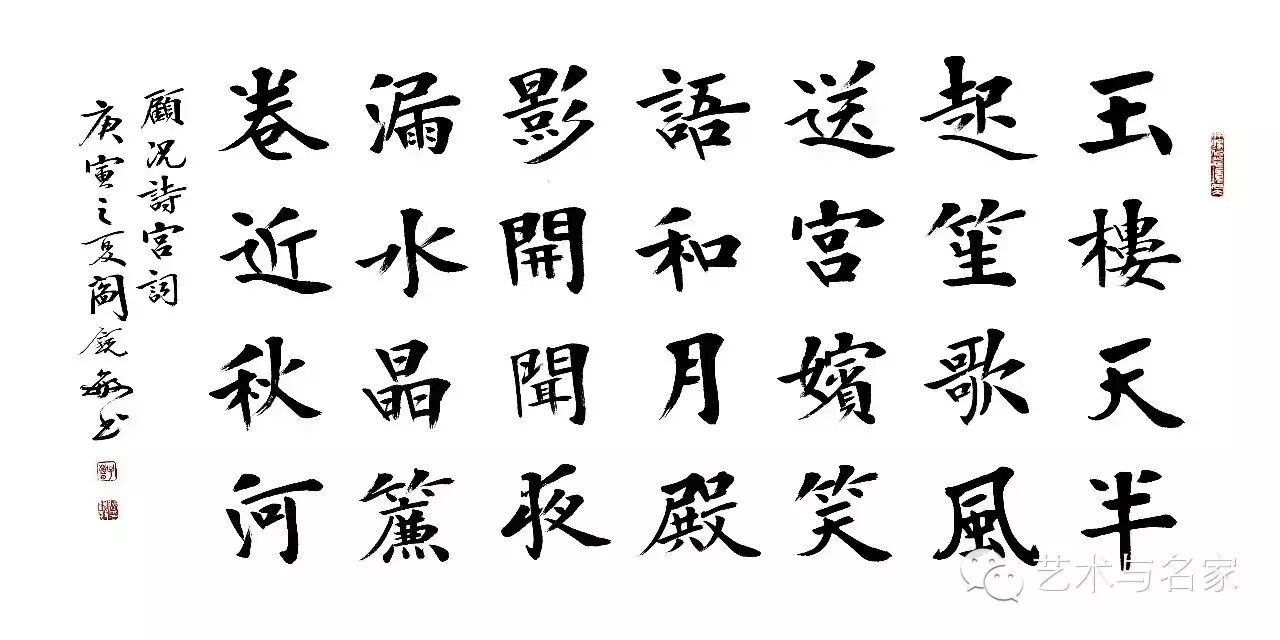 玉樓天半
起笙歌風
送宮嬪笑
語和月殿
影開聞夜
漏水晶簾
卷近秋河
顧况詩宮詞
庚寅之夏閻銳敏书
艺术与名家